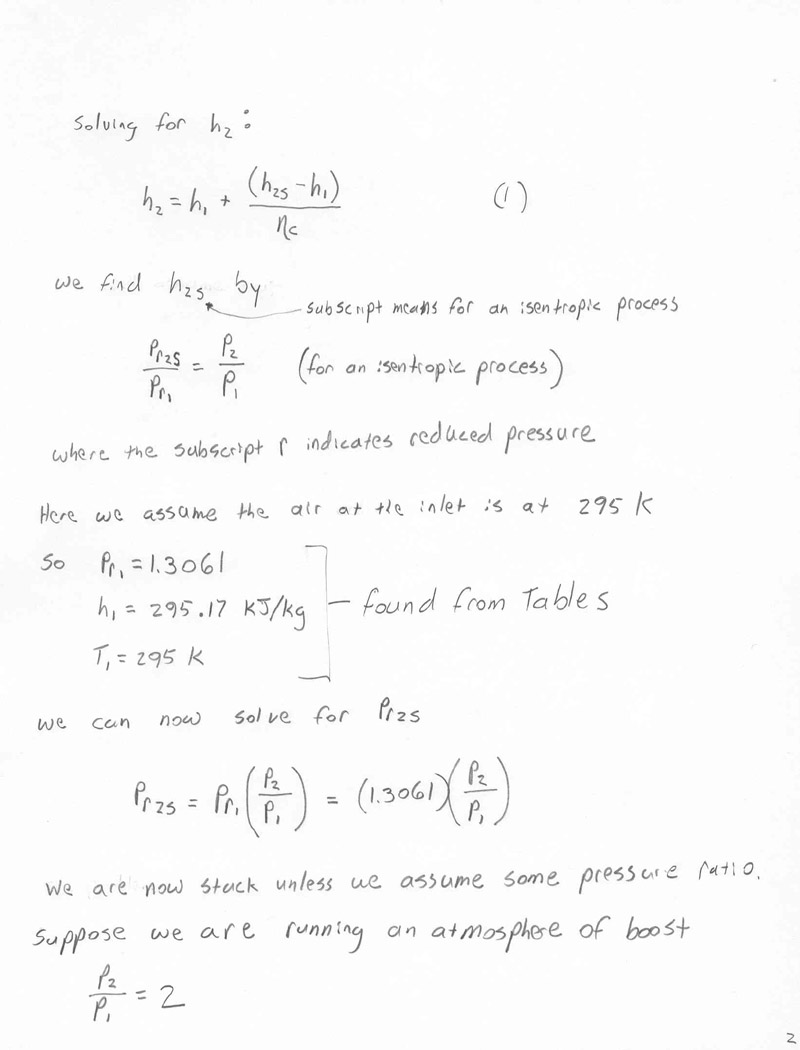 Solving for h₂ :
h₂ = h₁ + (h₂s - h₁) / ηc (1)
we find h₂s by
subscript means for an isentropic process
Pr2s / Pr₁ = P₂ / P₁ (for an isentropic process)
where the subscript r indicates reduced pressure
Here we assume the air at the inlet is at 295 K
So Pr₁ = 1.3061
h₁ = 295.17 KJ/kg
found from Tables
T₁ = 295 K
we can now solve for Pr2s
Pr2s = Pr₁ (P₂ / P₁) = (1.3061) (P₂ / P₁)
we are now stuck unless we assume some pressure ratio.
Suppose we are running an atmosphere of boost
P₂ / P₁ = 2
2